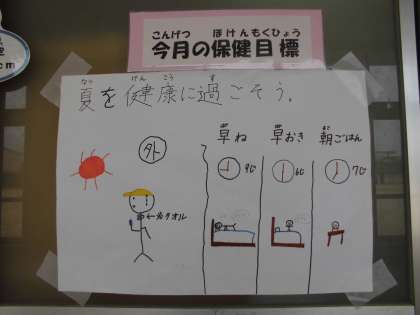 こんげつ ほけんもくひょう
今月の保健目標
なつ けん こう す
夏を健康に過ごそう。
外
草ね 草おき 朝ごはん
9じ 6じ 7じ
タオル
cm